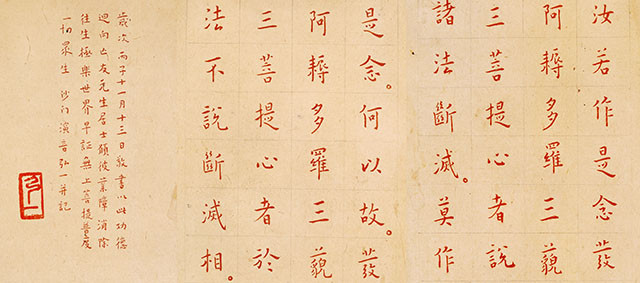 汝若作是念發
阿耨多羅三藐
三菩提心者說
諸法斷滅。莫作
是念。何以故。發
阿耨多羅三藐
三菩提心者於
法不說斷滅相。
歲次丙子十一月十三日敬書以此功德
迴向亡友元生居士願彼業障消除
往生極樂世界早証無上菩提普度
一切眾生 沙門演音弘一并記